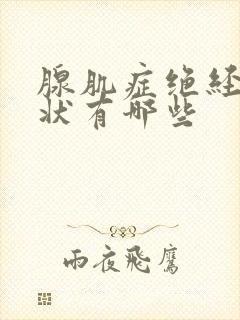 腺肌症绝经
状有哪些
雨夜飛鷹